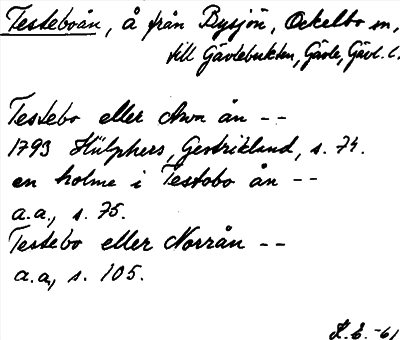 Testeboån, å från Bysjön, Ockelbo sn,
till Gävlebukten, Gävle, Gävl. l.
Testebo eller Awn ån --
1793 Hülphers, Gestrikland, s. 74.
en holme i Testebo ån --
a.a., s. 75.
Testebo eller Norrån --
a.a., s. 105.
K.E. -61